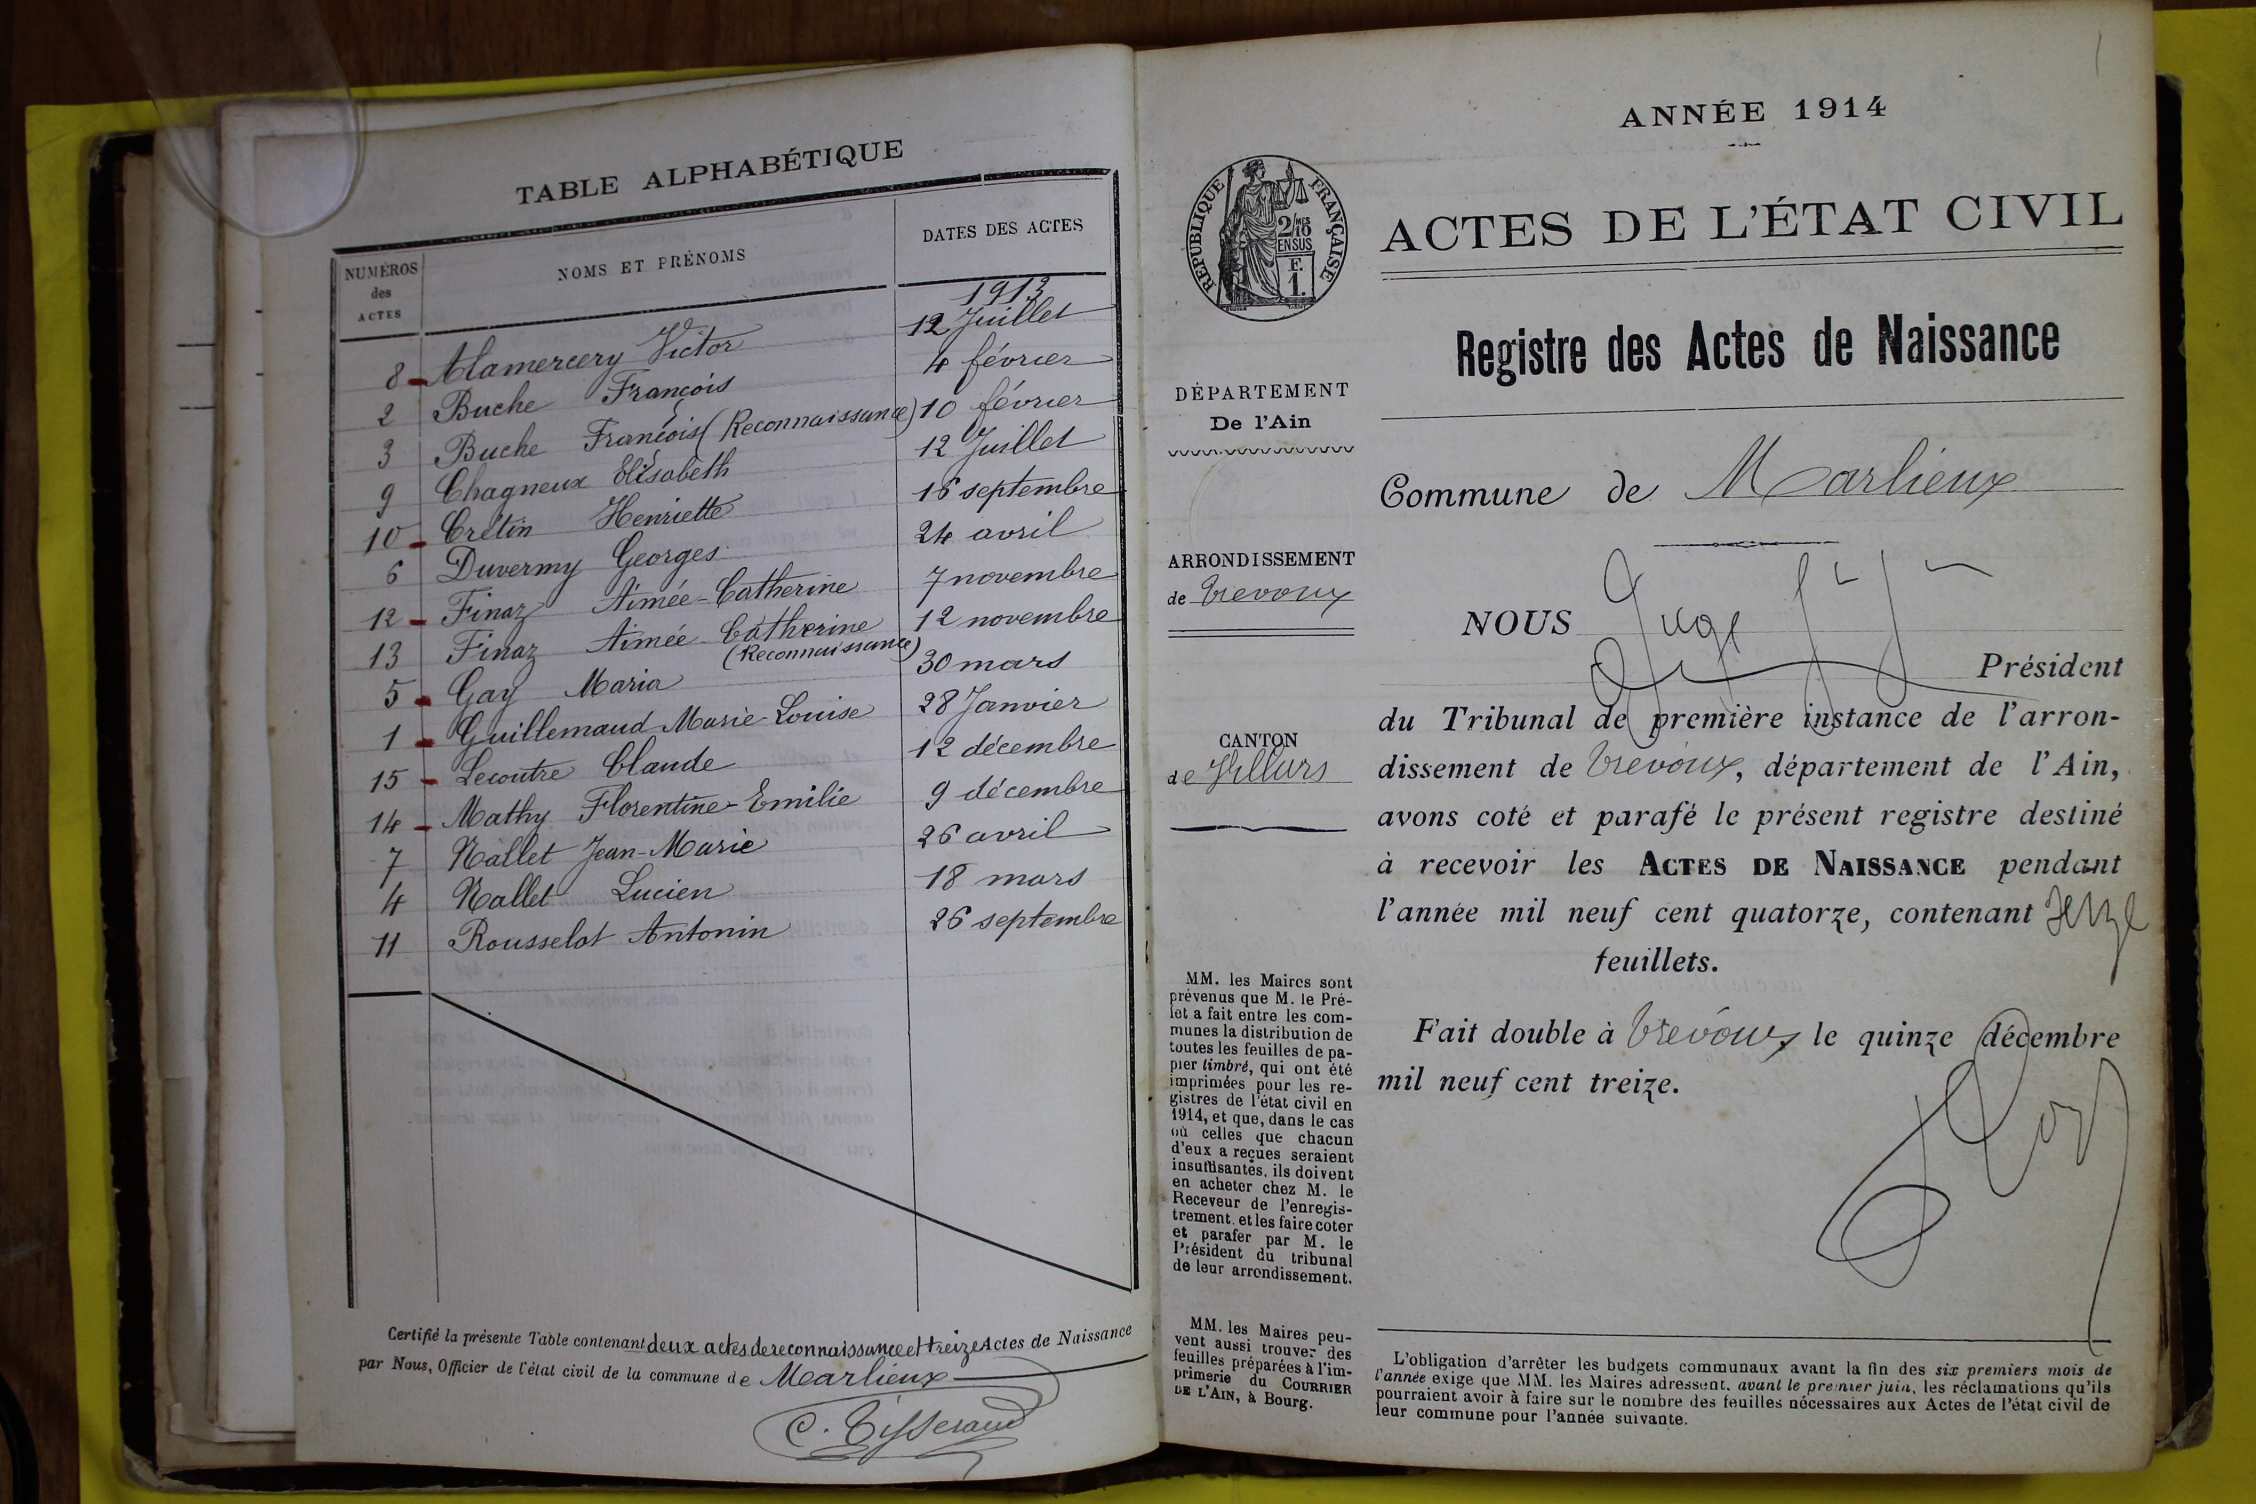 TABLE ALPHABÉTIQUE
NUMÉROS des ACTES
NOMS ET PRÉNOMS
DATES DES ACTES
1913
8 Alamercery Victor 12 Juillet
2 Buche François 4 février
3 Buche François (Reconnaissance) 10 février
9 Chagneux Elisabeth 12 Juillet
10 Crétin Henriette 16 septembre
6 Duvermy Georges 24 avril
12 Finaz Aimée-Catherine 7 novembre
13 Finaz Aimée Catherine 12 novembre
(Reconnaissance)
5 Gay Maria 30 mars
1 Guillemaud Marie-Louise 28 Janvier
15 Lecoutre Claude 12 décembre
14 Mathy Florentine-Emilie 9 décembre
7 Nallet Jean-Marie 26 avril
4 Nallet Lucien 18 mars
11 Rousselot Antonin 26 septembre
Certifié la présente Table contenant deux actes de reconnaissance et treize Actes de Naissance
par Nous, Officier de l'état civil de la commune de Marlieux
C. Tisserand
ANNÉE 1914
RÉPUBLIQUE FRANÇAISE
2/10 MES
EN SUS
F.
1.
ACTES DE L'ÉTAT CIVIL
Registre des Actes de Naissance
DÉPARTEMENT
De l'Ain
Commune de Marlieux
ARRONDISSEMENT
de Trévoux
NOUS Juge
Président
du Tribunal de première instance de l'arron-
CANTON
de Villars
dissement de Trévoux, département de l'Ain,
avons coté et parafé le présent registre destiné
à recevoir les ACTES DE NAISSANCE pendant
l'année mil neuf cent quatorze, contenant
feuillets.
Fait double à Trévoux, le quinze décembre
mil neuf cent treize.
MM. les Maires sont
prévenus que M. le Pré-
fet a fait entre les com-
munes la distribution de
toutes les feuilles de pa-
pier timbré, qui ont été
imprimées pour les re-
gistres de l'état civil en
1914, et que, dans le cas
où celles que chacun
d'eux a reçues seraient
insuffisantes, ils doivent
en acheter chez M. le
Receveur de l'enregis-
trement, et les faire coter
et parafer par M. le
Président du tribunal
de leur arrondissement.
MM. les Maires peu-
vent aussi trouver des
feuilles préparées à l'im-
primerie du COURRIER
DE L'AIN, à Bourg.
L'obligation d'arrêter les budgets communaux avant la fin des six premiers mois de
l'année exige que MM. les Maires adressent, avant le premier juin, les réclamations qu'ils
pourraient avoir à faire sur le nombre des feuilles nécessaires aux Actes de l'état civil de
leur commune pour l'année suivante.